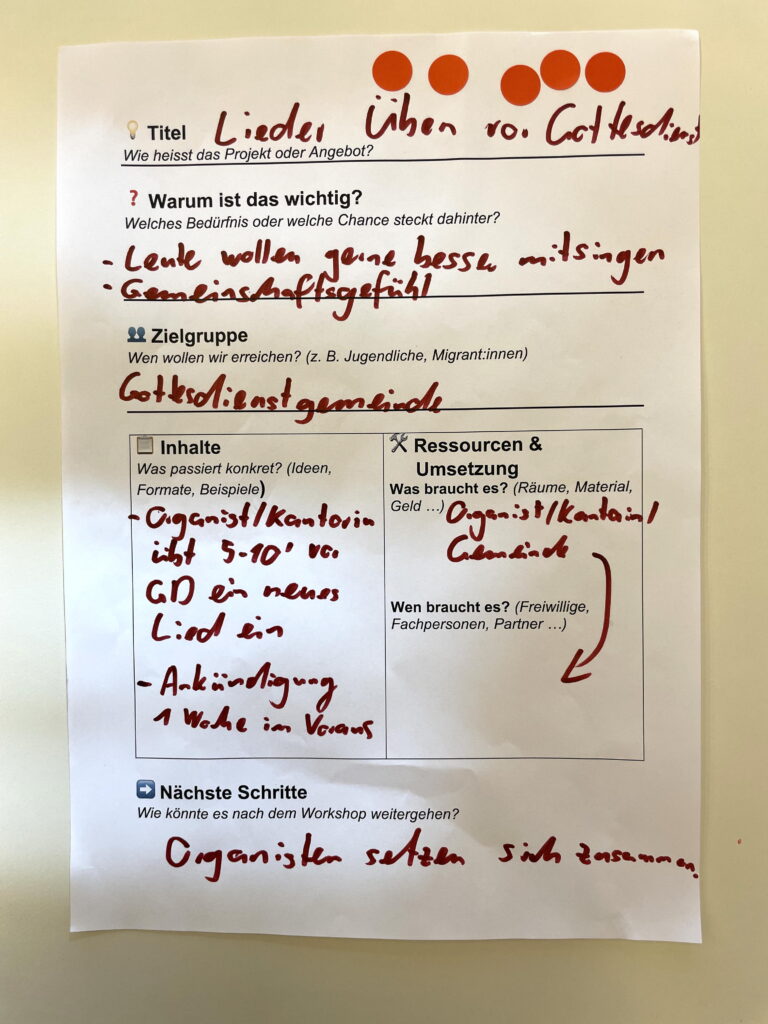 Titel Lieder Üben vor Gottesdienst
Wie heisst das Projekt oder Angebot?
Warum ist das wichtig?
Welches Bedürfnis oder welche Chance steckt dahinter?
- Leute wollen gerne besser mitsingen
- Gemeinschaftsgefühl
Zielgruppe
Wen wollen wir erreichen? (z. B. Jugendliche, Migrant:innen)
Gottesdienstgemeinde
Inhalte
Was passiert konkret? (Ideen,
Formate, Beispiele)
- Organist/Kantorin
übt 5-10' vor
GD ein neues
Lied ein
- Ankündigung
1 Woche im Voraus
Ressourcen &
Umsetzung
Was braucht es? (Räume, Material,
Geld ...) Organist/Kantorin/
Gemeinde
Wen braucht es? (Freiwillige,
Fachpersonen, Partner ...)
Nächste Schritte
Wie könnte es nach dem Workshop weitergehen?
Organisten setzen sich zusammen.